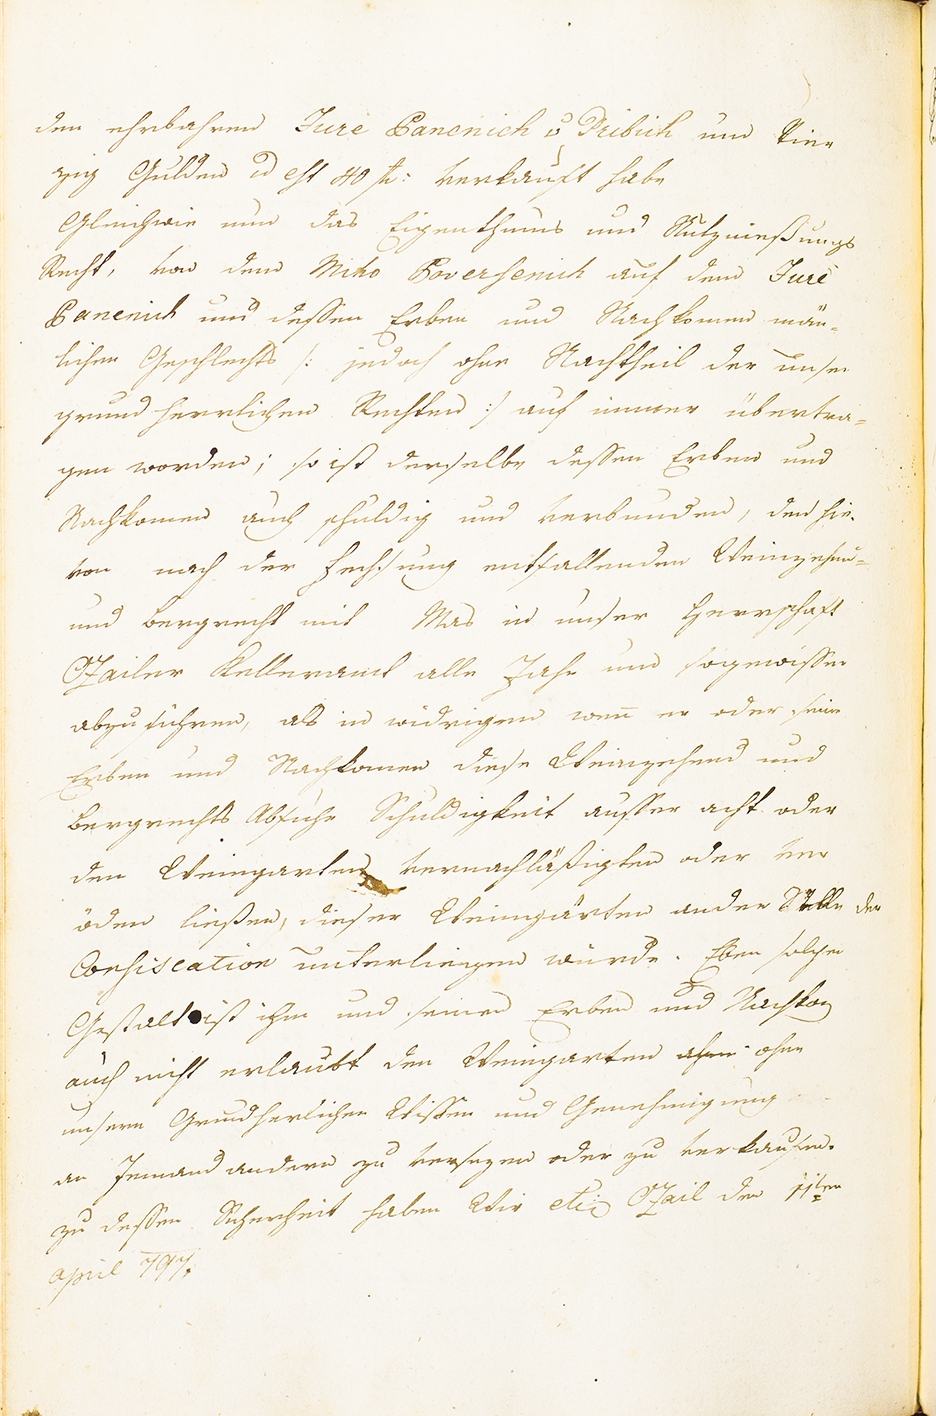 den ehrbahren Jure Panenich u Pribich um Vier
zig Gulden id est 40 fl: verkauft habe
Gleichwie nun das Eigenthums und Nutznießungs
Recht, von dem Miko Poversenich auf dem Jure
Panenich und dessen Erben und Nachkomen män-
lichen Geschlechts /: jedoch ohne Nachtheil der unser
grundherrlichen Rechten :/ auf immer übertra-
gen worden; so ist derselbe dessen Erben und
Nachkomen auch schuldig und verbunden, den hie-
von nach der Fechsung entfallenden Weinzehend-
und Bergrecht mit Mas in unser Herrschaft
Ozailer Kelleramt alle Jahr um sogewisser
abzuführen, als in widrigen wen er oder seine
Erben und Nachkomen diese Weinzehend und
Bergrechts Abfuhr Schuldigkeit ausser acht oder
den Weingarten vernachläßigten oder ver
öden ließen, dieser Weingarten an der Stelle der
Confiscation unterliegen würde. Eben solcher
Gestalt ist ihm und seinen Erben und Nachkom
auch nicht erlaubt den Weingarten ohne
unsern Grundherlichen Wissen und Genehmigung
an Jemand andern zu versezen oder zu verkaufen.
zu dessen Sicherheit haben Wir etc: Ozail den 11ten
april 797.